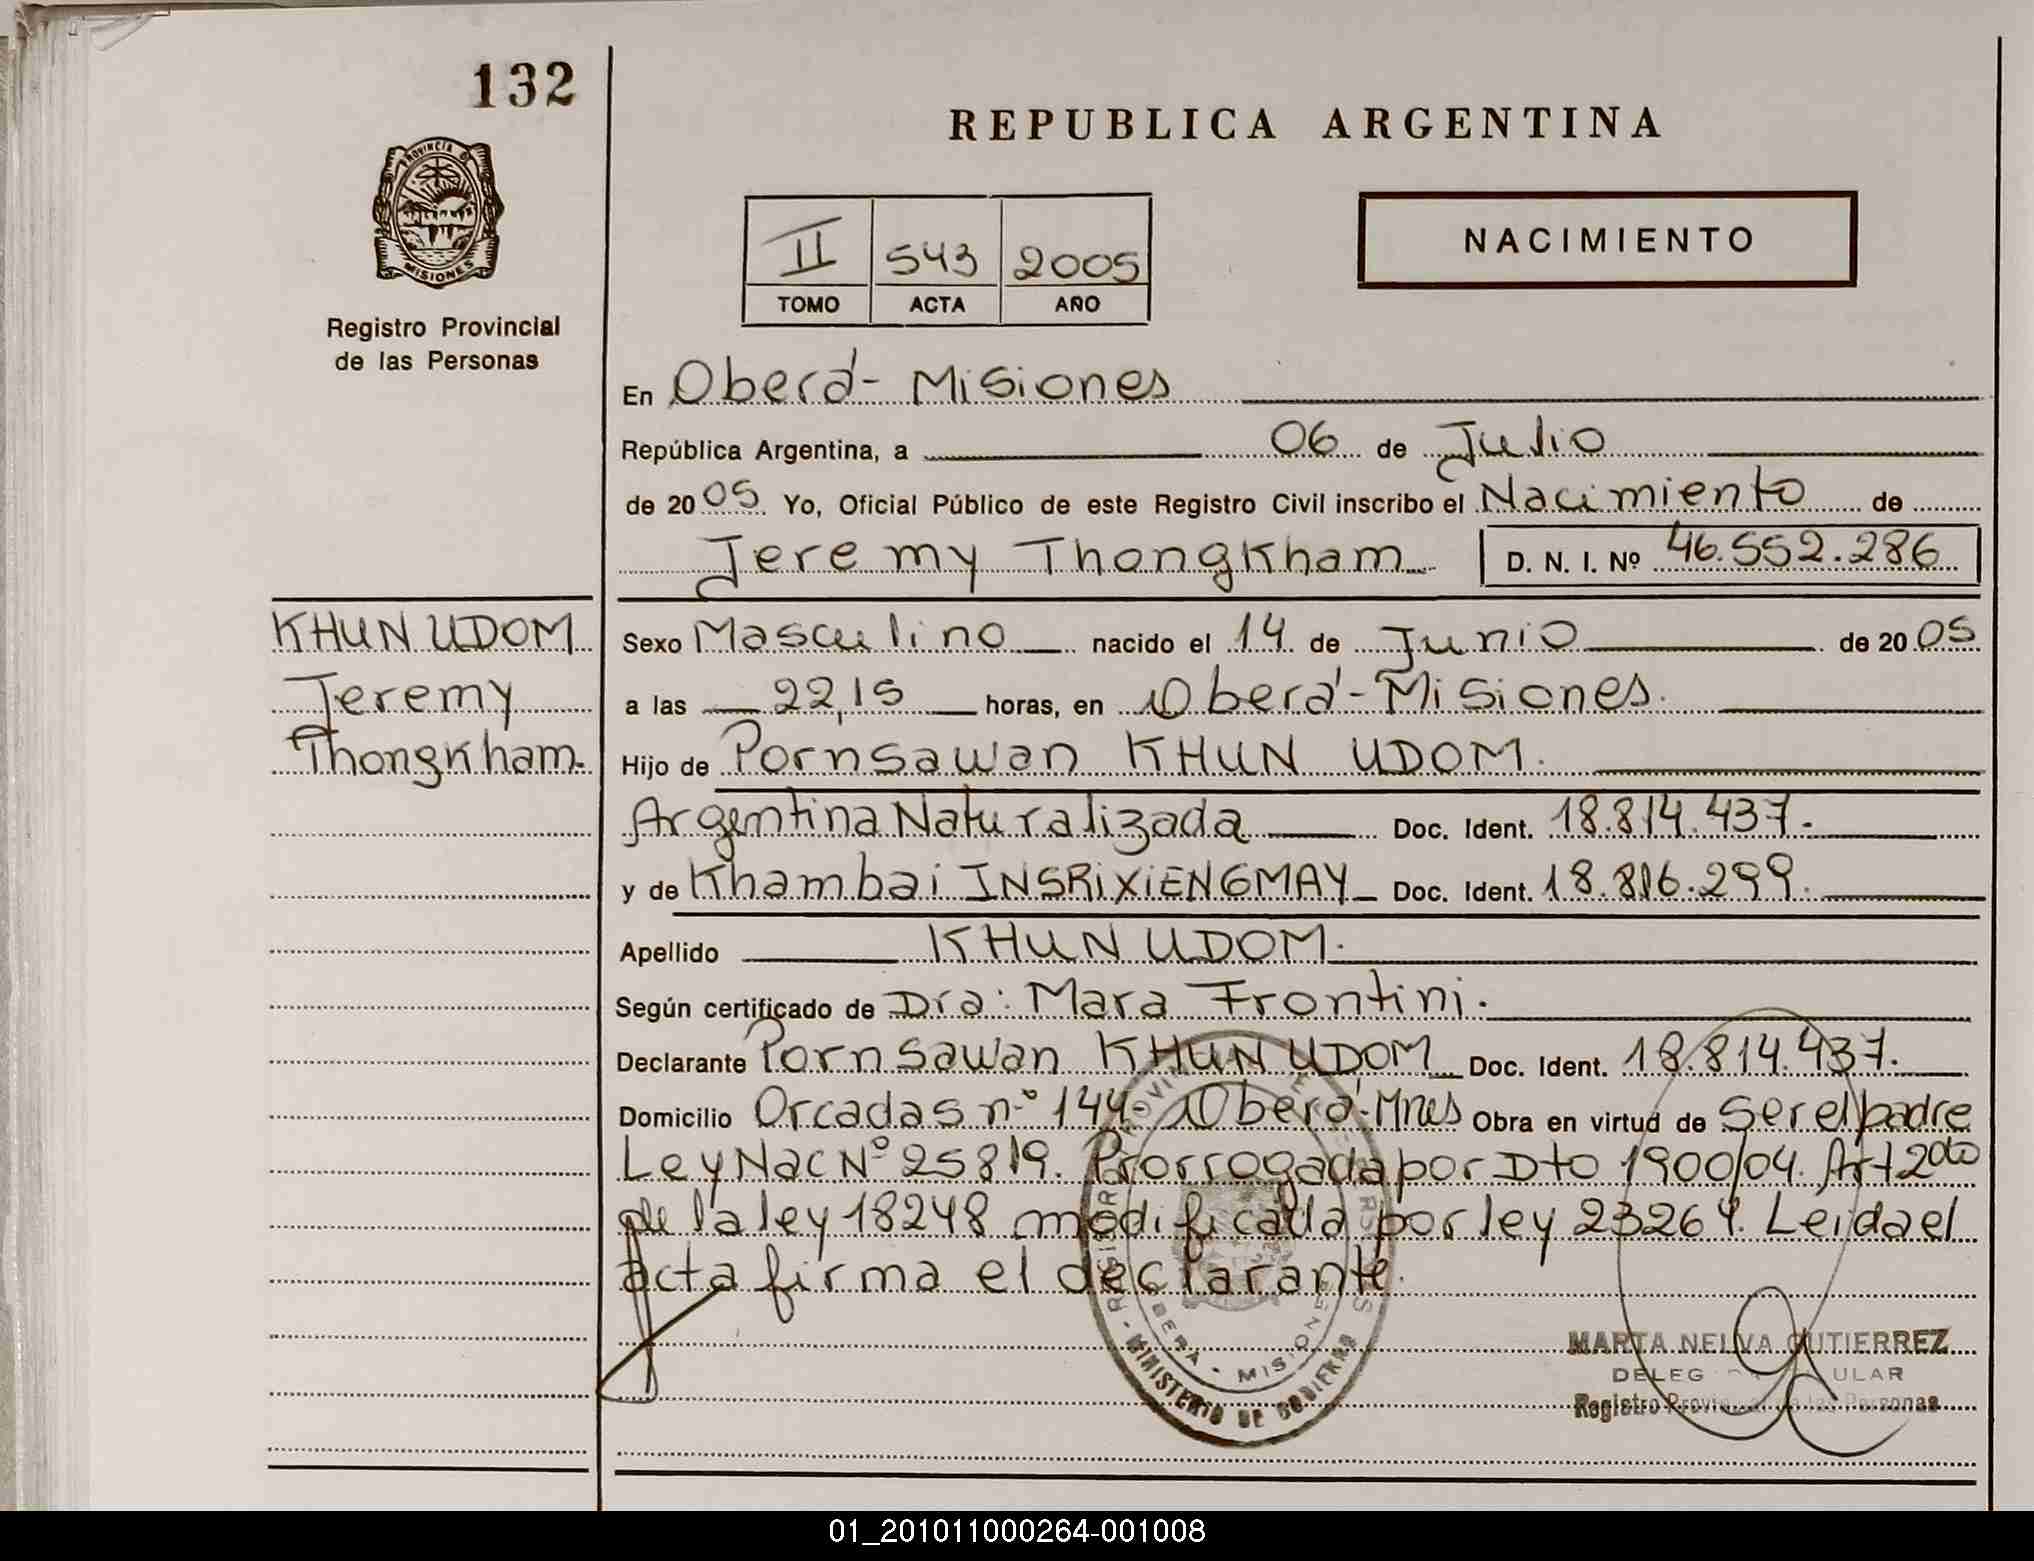 132
PROVINCIA D
MISIONES
Registro Provincial
de las Personas
REPUBLICA ARGENTINA
NACIMIENTO
II 543 2005
TOMO ACTA AÑO
En Oberá - Misiones
República Argentina, a 06 de Julio
de 2005 Yo, Oficial Público de este Registro Civil inscribo el Nacimiento de
Jeremy Thongkham D. N. I. Nº 46.552.286
KHUN UDOM
Jeremy
Thongkham.
Sexo Masculino nacido el 14 de Junio de 2005
a las 22,15 horas, en Oberá - Misiones.
Hijo de Pornsawan KHUN UDOM.
Argentina Naturalizada Doc. Ident. 18.814.437.
y de Khambai INSRIXIENGMAY Doc. Ident. 18.816.299.
Apellido KHUN UDOM.
Según certificado de Dra: Mara Frontini.
Declarante Pornsawan KHUN UDOM Doc. Ident. 18.814.437.
Domicilio Orcadas nº 144 - Oberá - Mnes Obra en virtud de ser el padre
Ley Nac Nº 25819. Prorrogada por Dto 1900/04. Art 2do
de la ley 18248 modificada por ley 23264. Leida el
acta firma el declarante.
OBERA - MISIONES
MINISTERIO DE GOBIERNO
MARTA NELVA GUTIERREZ
DELEG ULAR
Registro Provincial de las Personas
01_201011000264-001008